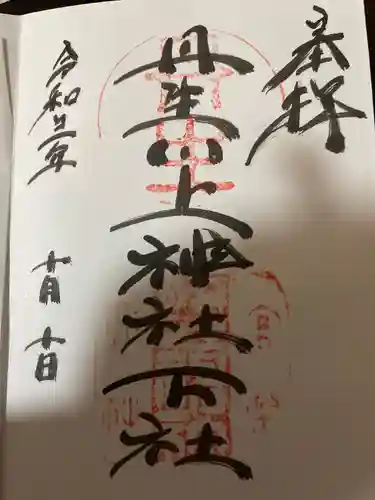 奉拝
丹生川上神社下社
令和三年 十月 十日